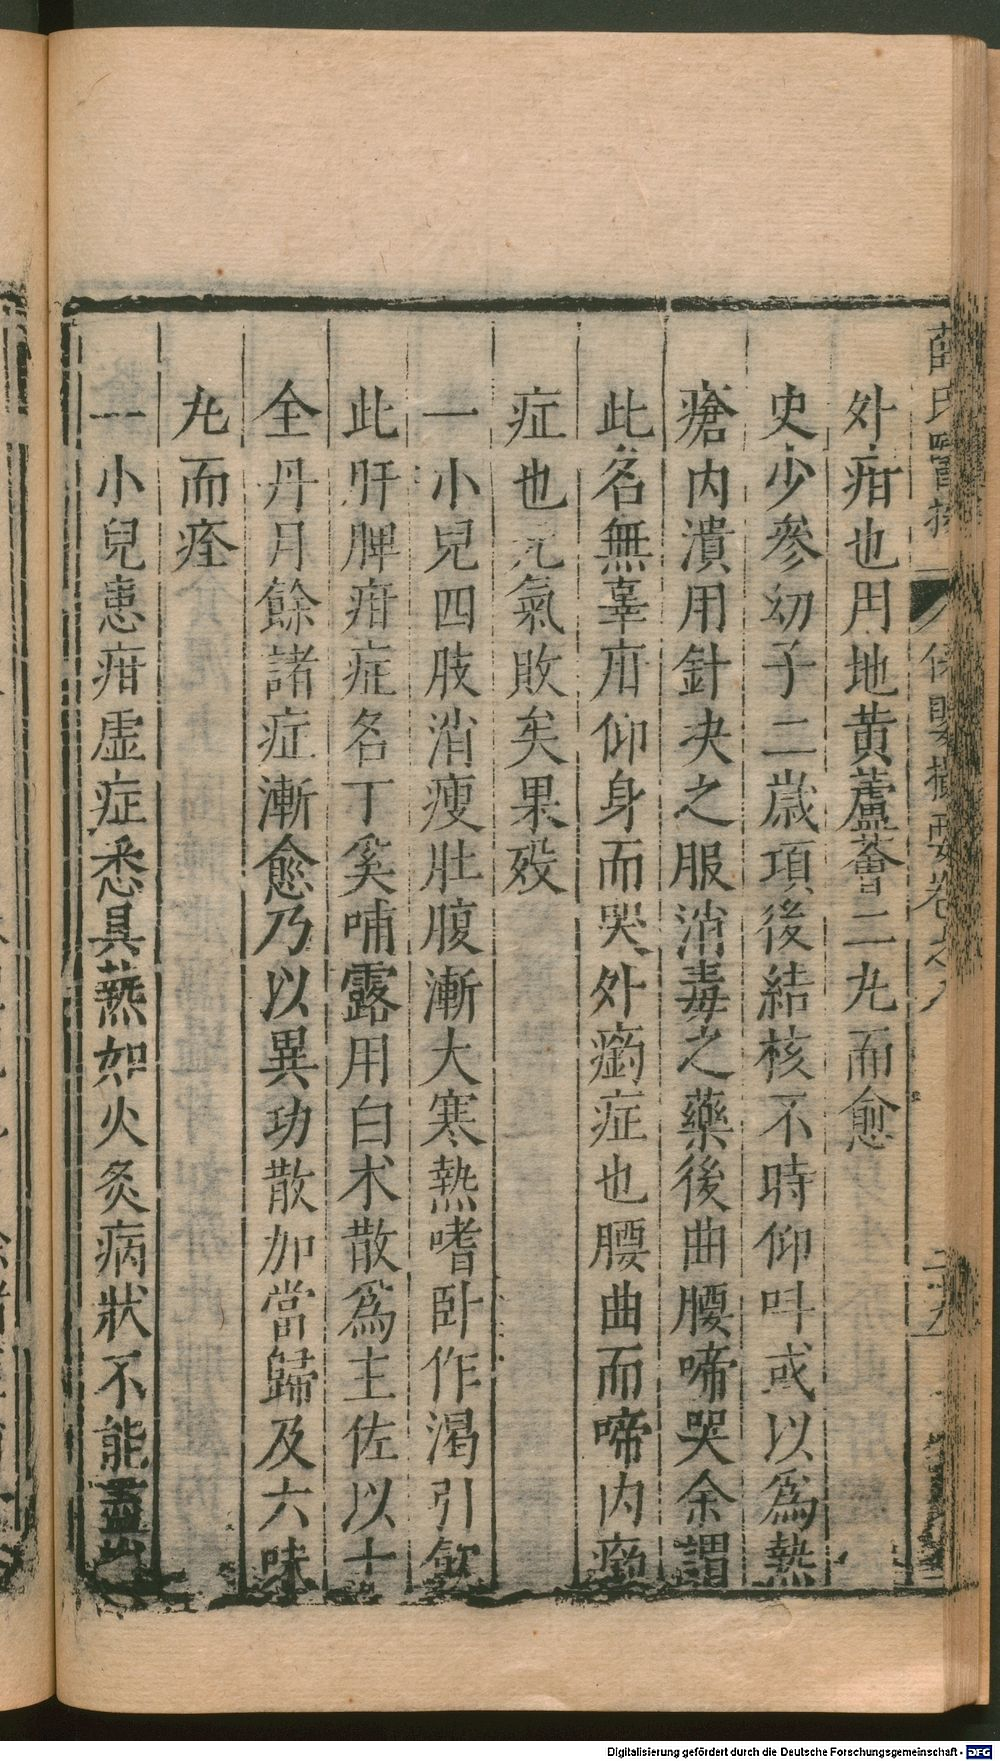 薛氏醫按 保嬰撮要卷之八
外疳也用地黃蘆薈二丸而愈
史少參幼子二歲項後結核不時仰呌或以爲熱
瘡内潰用針决之服消毒之藥後曲腰啼哭余謂
此名無辜疳仰身而哭外癎症也腰曲而啼内癎
症也元氣敗矣果歿
一小兒四肢消瘦肚腹漸大寒熱嗜卧作渴引飲
此肝脾疳症名丁奚哺露用白术散爲主佐以十
全丹月餘諸症漸愈乃以異功散加當歸及六味
丸而痊
一小兒患疳虛症悉具熱如火炙病狀不能盡
Digitalisierung gefördert durch die Deutsche Forschungsgemeinschaft - DFG